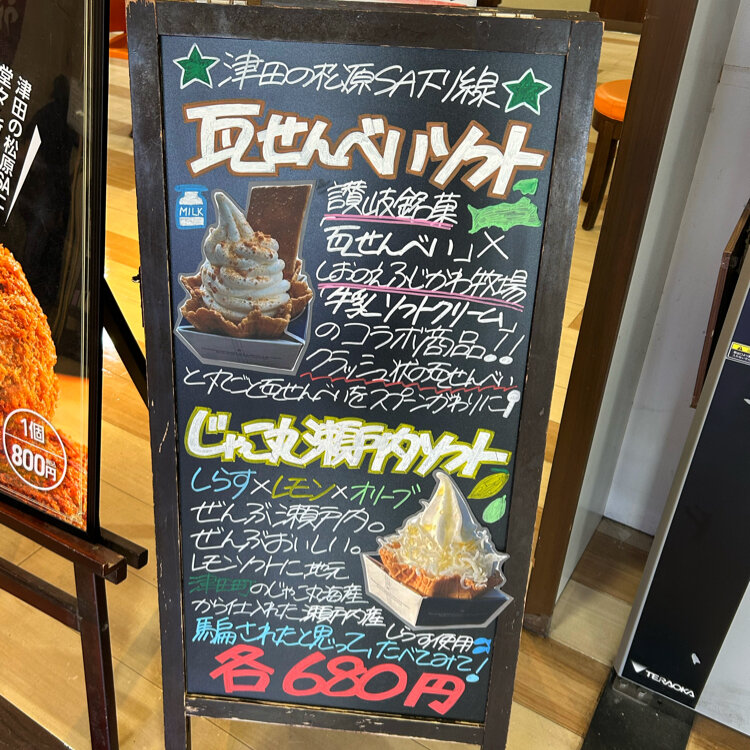 津田の松原SA下り線
瓦せんべいソフト
MILK
讃岐銘菓
瓦せんべい」×
しおのえふじかわ牧場
「牛乳ソフトクリーム」
のコラボ商品!!
クラッシュ状の瓦せんべい
とまるごと瓦せんべいをスプーンがわりに!
じゃこ丸瀬戸内ソフト
しらす×レモン×オリーブ
ぜんぶ瀬戸内。
ぜんぶおいしい。
レモンソフトに地元
津田町のじゃこ丸海産
から仕入れた瀬戸内産
しらす使用
騙されたと思って、たべてみて!
各680円
津田の松原SA
1個
800円
TERAOKA